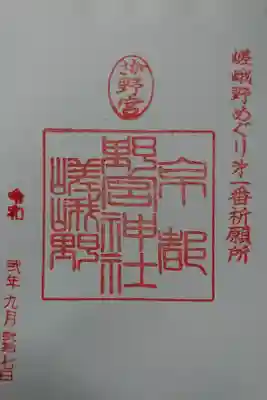 嵯峨野めぐり第一番祈願所
野宮
京都
野宮神社
嵯峨野
令和
弐年九月